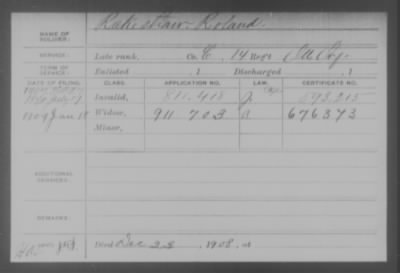 NAME OF SOLDIER: Rakestraw Roland
SERVICE: Late rank, Co. E, 14 Reg't Ill Cav.
TERM OF SERVICE: Enlisted , 1 Discharged , 1
DATE OF FILING. CLASS. APPLICATION NO. LAW. CERTIFICATE NO.
1890 July 17 Invalid, 811.418 J. 593.215
1909 Jan 18 Widow, 911 703 676373
Minor,
ADDITIONAL SERVICES:
REMARKS:
Died Dec 23, 1908, at